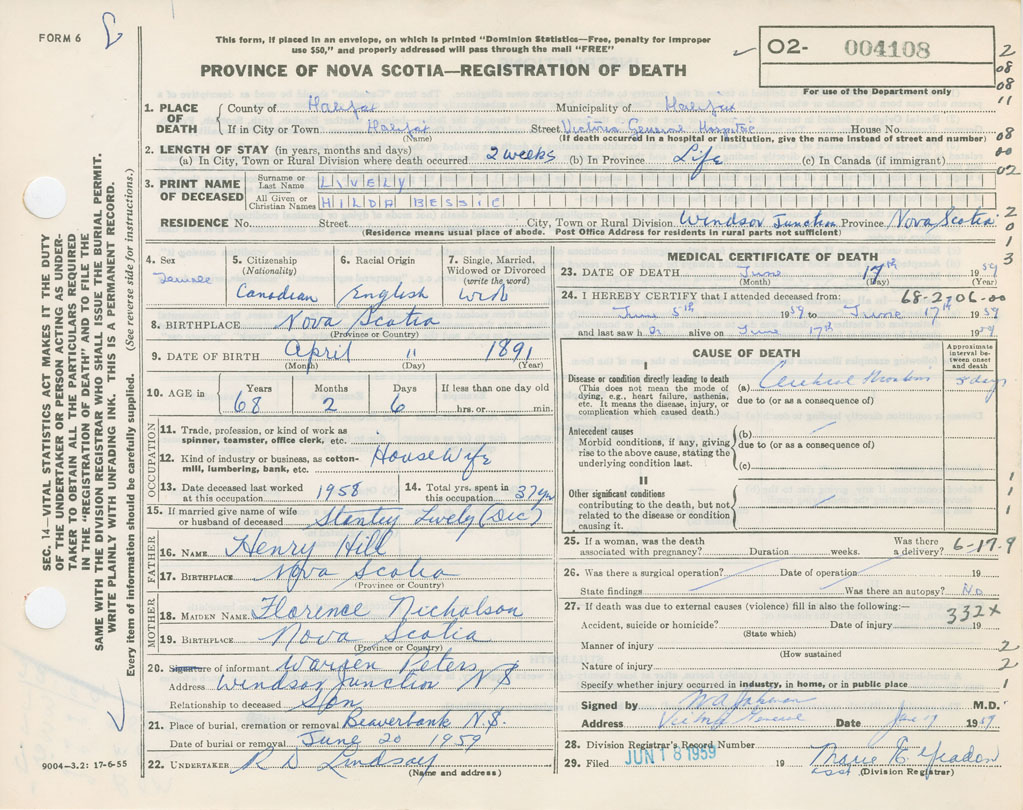 FORM 6
This form, if placed in an envelope, on which is printed "Dominion Statistics—Free, penalty for improper
use $50," and properly addressed will pass through the mail "FREE"
PROVINCE OF NOVA SCOTIA—REGISTRATION OF DEATH
02- 004108
For use of the Department only
2
08
08
11
08
00
02
2
0
1
3
1. PLACE OF DEATH
County of Halifax Municipality of Halifax
If in City or Town Halifax Street Victoria General Hospital House No.
(Name) (If death occurred in a hospital or institution, give the name instead of street and number)
2. LENGTH OF STAY (in years, months and days)
(a) In City, Town or Rural Division where death occurred 2 weeks (b) In Province Life (c) In Canada (if immigrant)
3. PRINT NAME OF DECEASED
Surname or Last Name LIVELY
All Given or Christian Names HILDA BESSIE
RESIDENCE No. Street City, Town or Rural Division Windsor Junction Province Nova Scotia
(Residence means usual place of abode. Post Office Address for residents in rural parts not sufficient)
4. Sex Female
5. Citizenship (Nationality) Canadian
6. Racial Origin English
7. Single, Married, Widowed or Divorced (write the word) Wid
8. BIRTHPLACE Nova Scotia
(Province or Country)
9. DATE OF BIRTH April 11 1891
(Month) (Day) (Year)
10. AGE in Years 68 Months 2 Days 6 If less than one day old
hrs. or min.
OCCUPATION
11. Trade, profession, or kind of work as
spinner, teamster, office clerk, etc.
12. Kind of industry or business, as cotton-
mill, lumbering, bank, etc. HouseWife
13. Date deceased last worked at this occupation 1958
14. Total yrs. spent in this occupation 37 yrs
15. If married give name of wife
or husband of deceased Stanley Lively (Dec)
FATHER
16. NAME Henry Hill
17. BIRTHPLACE Nova Scotia
(Province or Country)
MOTHER
18. MAIDEN NAME Florence Nicholson
19. BIRTHPLACE Nova Scotia
(Province or Country)
20. Signature of informant Warren Peters
Address Windsor Junction N S
Relationship to deceased Son
21. Place of burial, cremation or removal Beaverbank N.S.
Date of burial or removal June 20 1959
22. UNDERTAKER R D Lindsay
(Name and address)
MEDICAL CERTIFICATE OF DEATH
23. DATE OF DEATH June 17th 1959
(Month) (Day) (Year)
24. I HEREBY CERTIFY that I attended deceased from: 68-2-06-00
June 5th 1959 to June 17th 1959
and last saw h er alive on June 17th 1959
CAUSE OF DEATH
Approximate interval between onset and death
I
Disease or condition directly leading to death (a) Cerebral Thrombosis 3 days
(This does not mean the mode of
dying, e.g., heart failure, asthenia,
etc. It means the disease, injury, or
complication which caused death.)
due to (or as a consequence of)
Antecedent causes (b)
Morbid conditions, if any, giving
rise to the above cause, stating the
underlying condition last.
due to (or as a consequence of)
(c)
II
Other significant conditions
contributing to the death, but not
related to the disease or condition
causing it.
1
1
1
25. If a woman, was the death
associated with pregnancy? Duration weeks. Was there a delivery? 6-17-9
26. Was there a surgical operation? Date of operation 19
State findings Was there an autopsy? No
27. If death was due to external causes (violence) fill in also the following:—
332X
Accident, suicide or homicide? Date of injury 19
(State which)
Manner of injury 2
(How sustained
Nature of injury 2
Specify whether injury occurred in industry, in home, or in public place 1
Signed by M.D.
Address Date 1959
28. Division Registrar's Record Number
29. Filed JUN 18 1959 19 Marie E.
Asst (Division Registrar)
SEC. 14—VITAL STATISTICS ACT MAKES IT THE DUTY
OF THE UNDERTAKER OR PERSON ACTING AS UNDER-
TAKER TO OBTAIN ALL THE PARTICULARS REQUIRED
IN THE "REGISTRATION OF DEATH" AND TO FILE THE
SAME WITH THE DIVISION REGISTRAR WHO SHALL ISSUE THE BURIAL PERMIT.
WRITE PLAINLY WITH UNFADING INK. THIS IS A PERMANENT RECORD.
Every item of information should be carefully supplied. (See reverse side for instructions.)
9004-3.2: 17-6-55